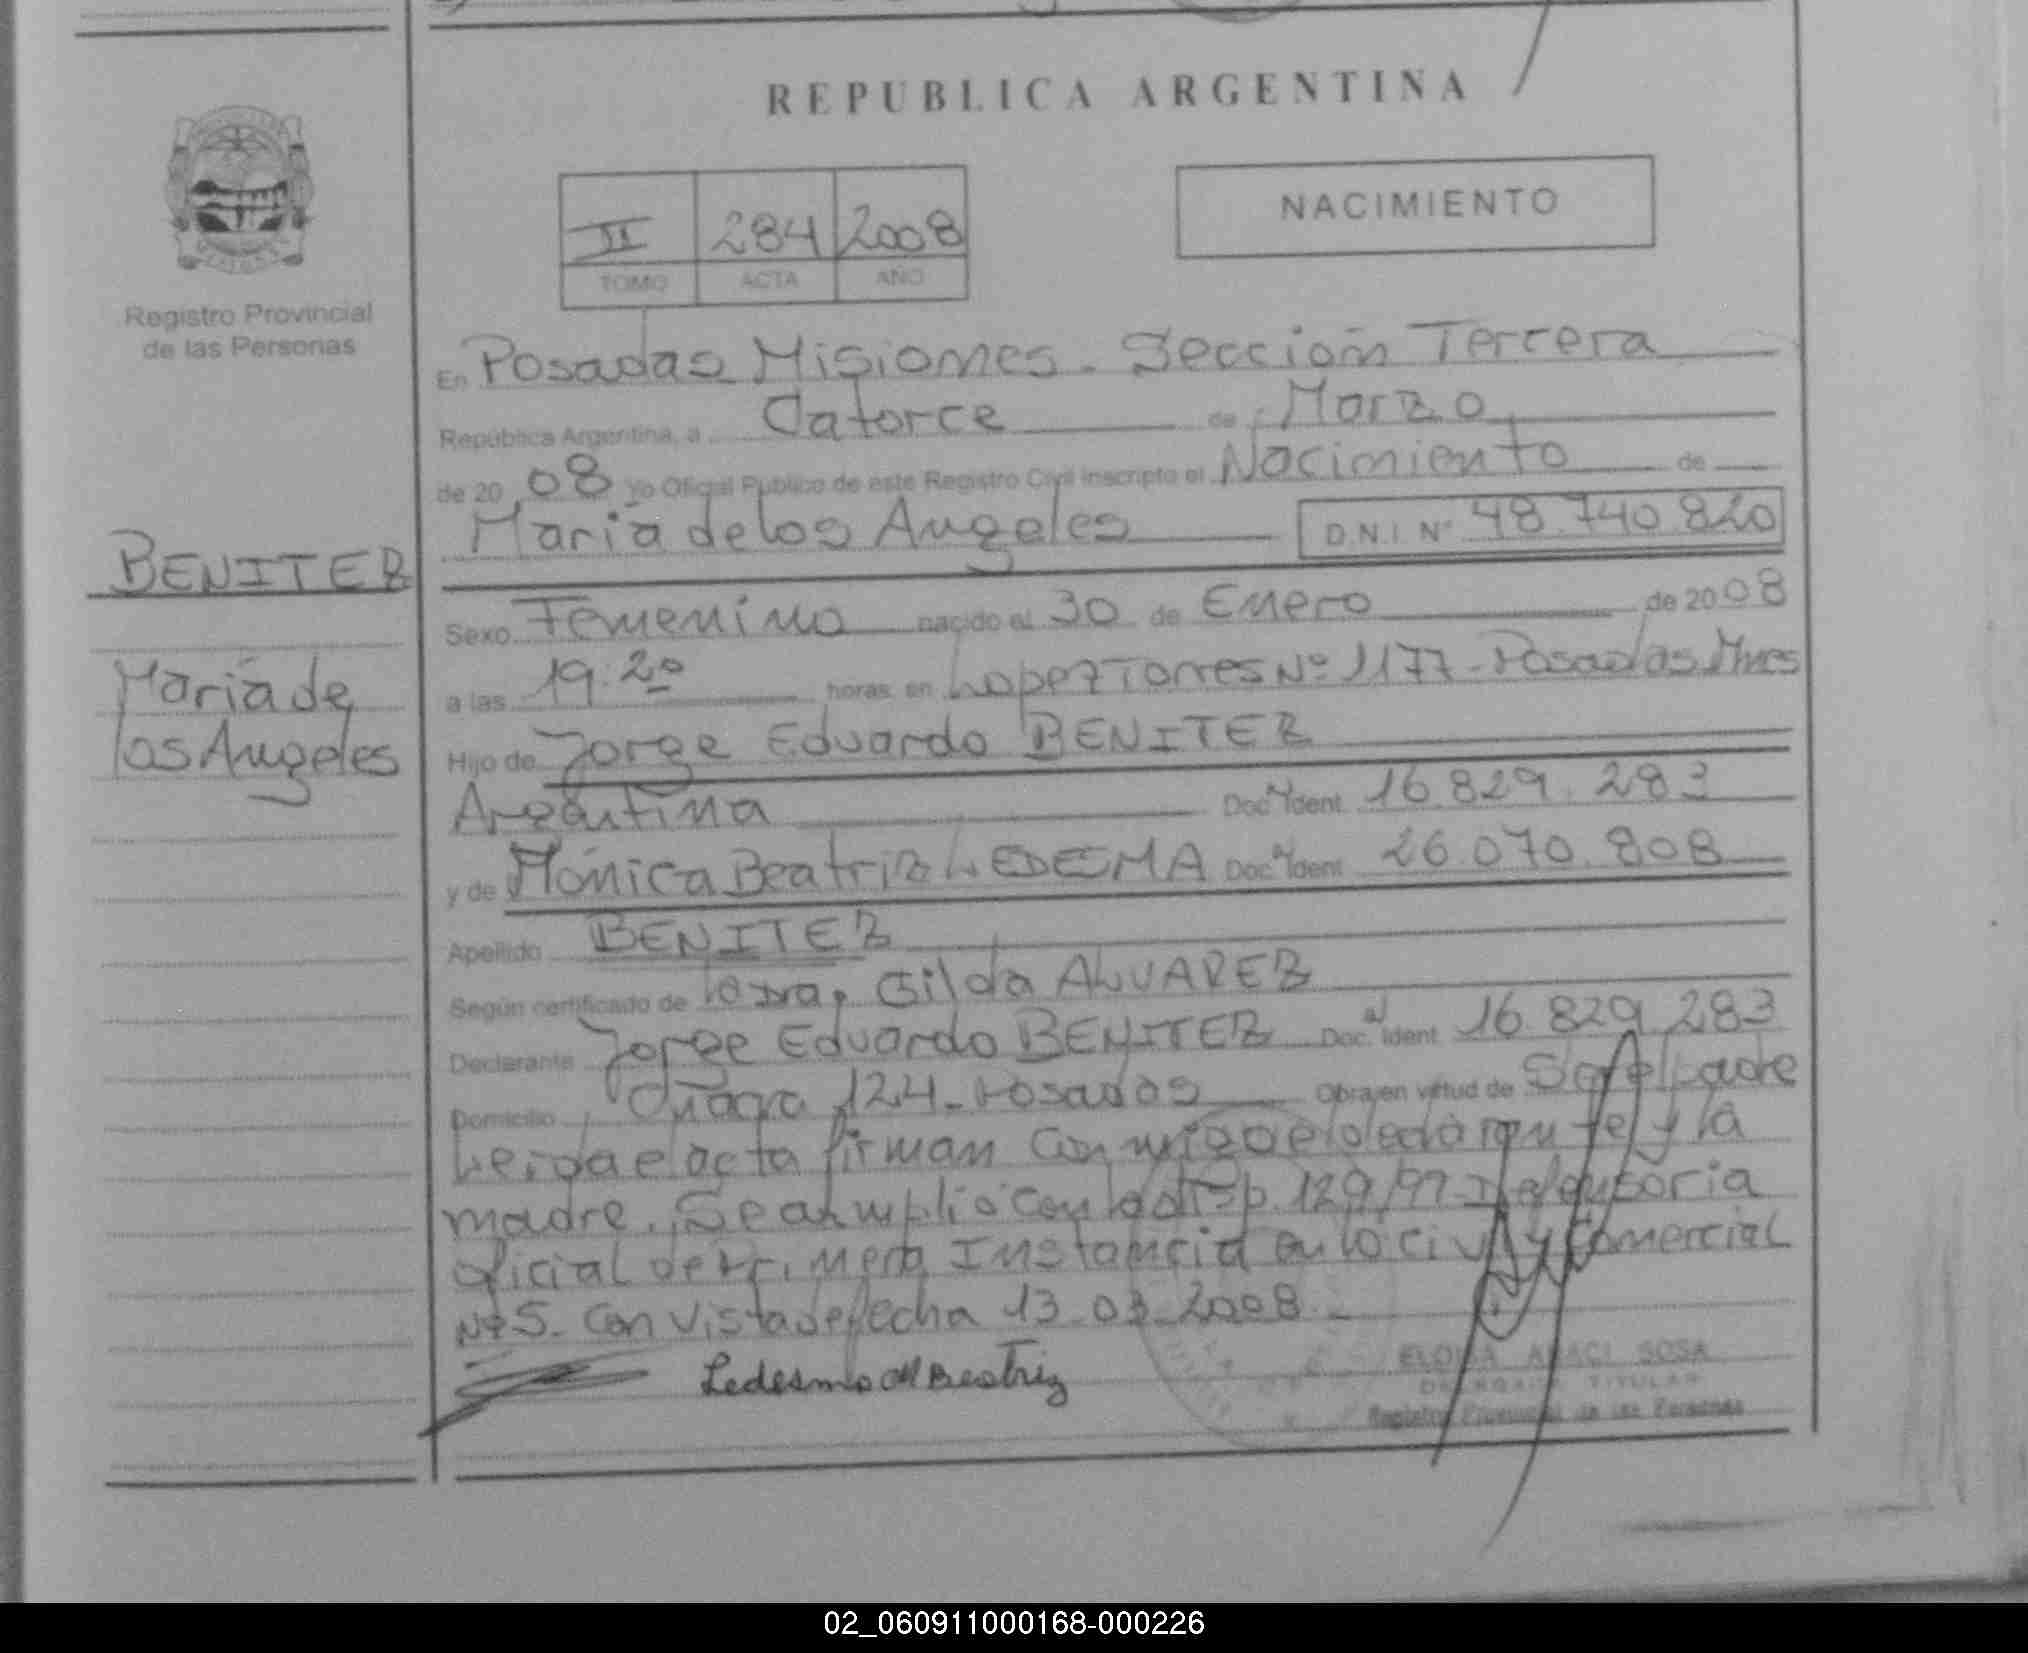 REPUBLICA ARGENTINA
NACIMIENTO
II 284 2008
TOMO ACTA AÑO
Registro Provincial
de las Personas
En Posadas Misiones. Sección Tercera
República Argentina, a Catorce de Marzo
de 20 08 Yo Oficial Público de este Registro Civil inscripto el Nacimiento de
María de los Angeles D.N.I. Nº 48.740.820
BENITEZ
María de
los Angeles
Sexo Femenino nacido el 30 de Enero de 2008
a las 19:20 horas en Lopez Torres Nº 1177 - Posadas Mnes
Hijo de Jorge Eduardo BENITEZ
Argentina Doc. Ident. 16.829.283
y de Mónica Beatriz LEDESMA Doc. Ident. 26.070.808
Apellido BENITEZ
Según certificado de la Dra. Gilda ALVAREZ
Declarante Jorge Eduardo BENITEZ Doc. Ident. 16.829.283
Domicilio 124 - Posadas Obra en virtud de Ser el padre
Leida el acta firman conmigo el declarante y la
madre. Se amplió con la disp. 129/97 Defensoria
oficial de Primera Instancia en lo civil y Comercial
Nº 5. Con vista de fecha 13-03-2008.-
Ledesma M Beatriz
SOSA
TITULAR
Registro Provincial de las Personas
02_060911000168-000226